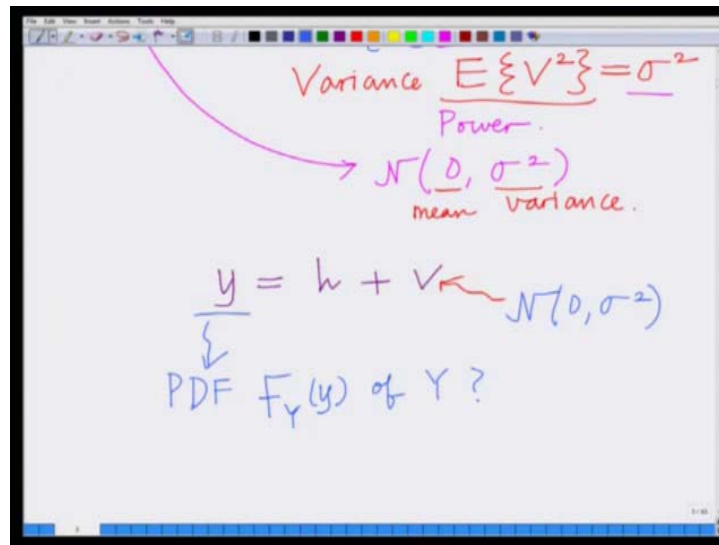 File Edit View Insert Actions Tools Help
Variance E{V²} = σ²
Power.
N(0, σ²)
mean variance.
y = h + V N(0, σ²)
PDF F_Y(y) of Y ?